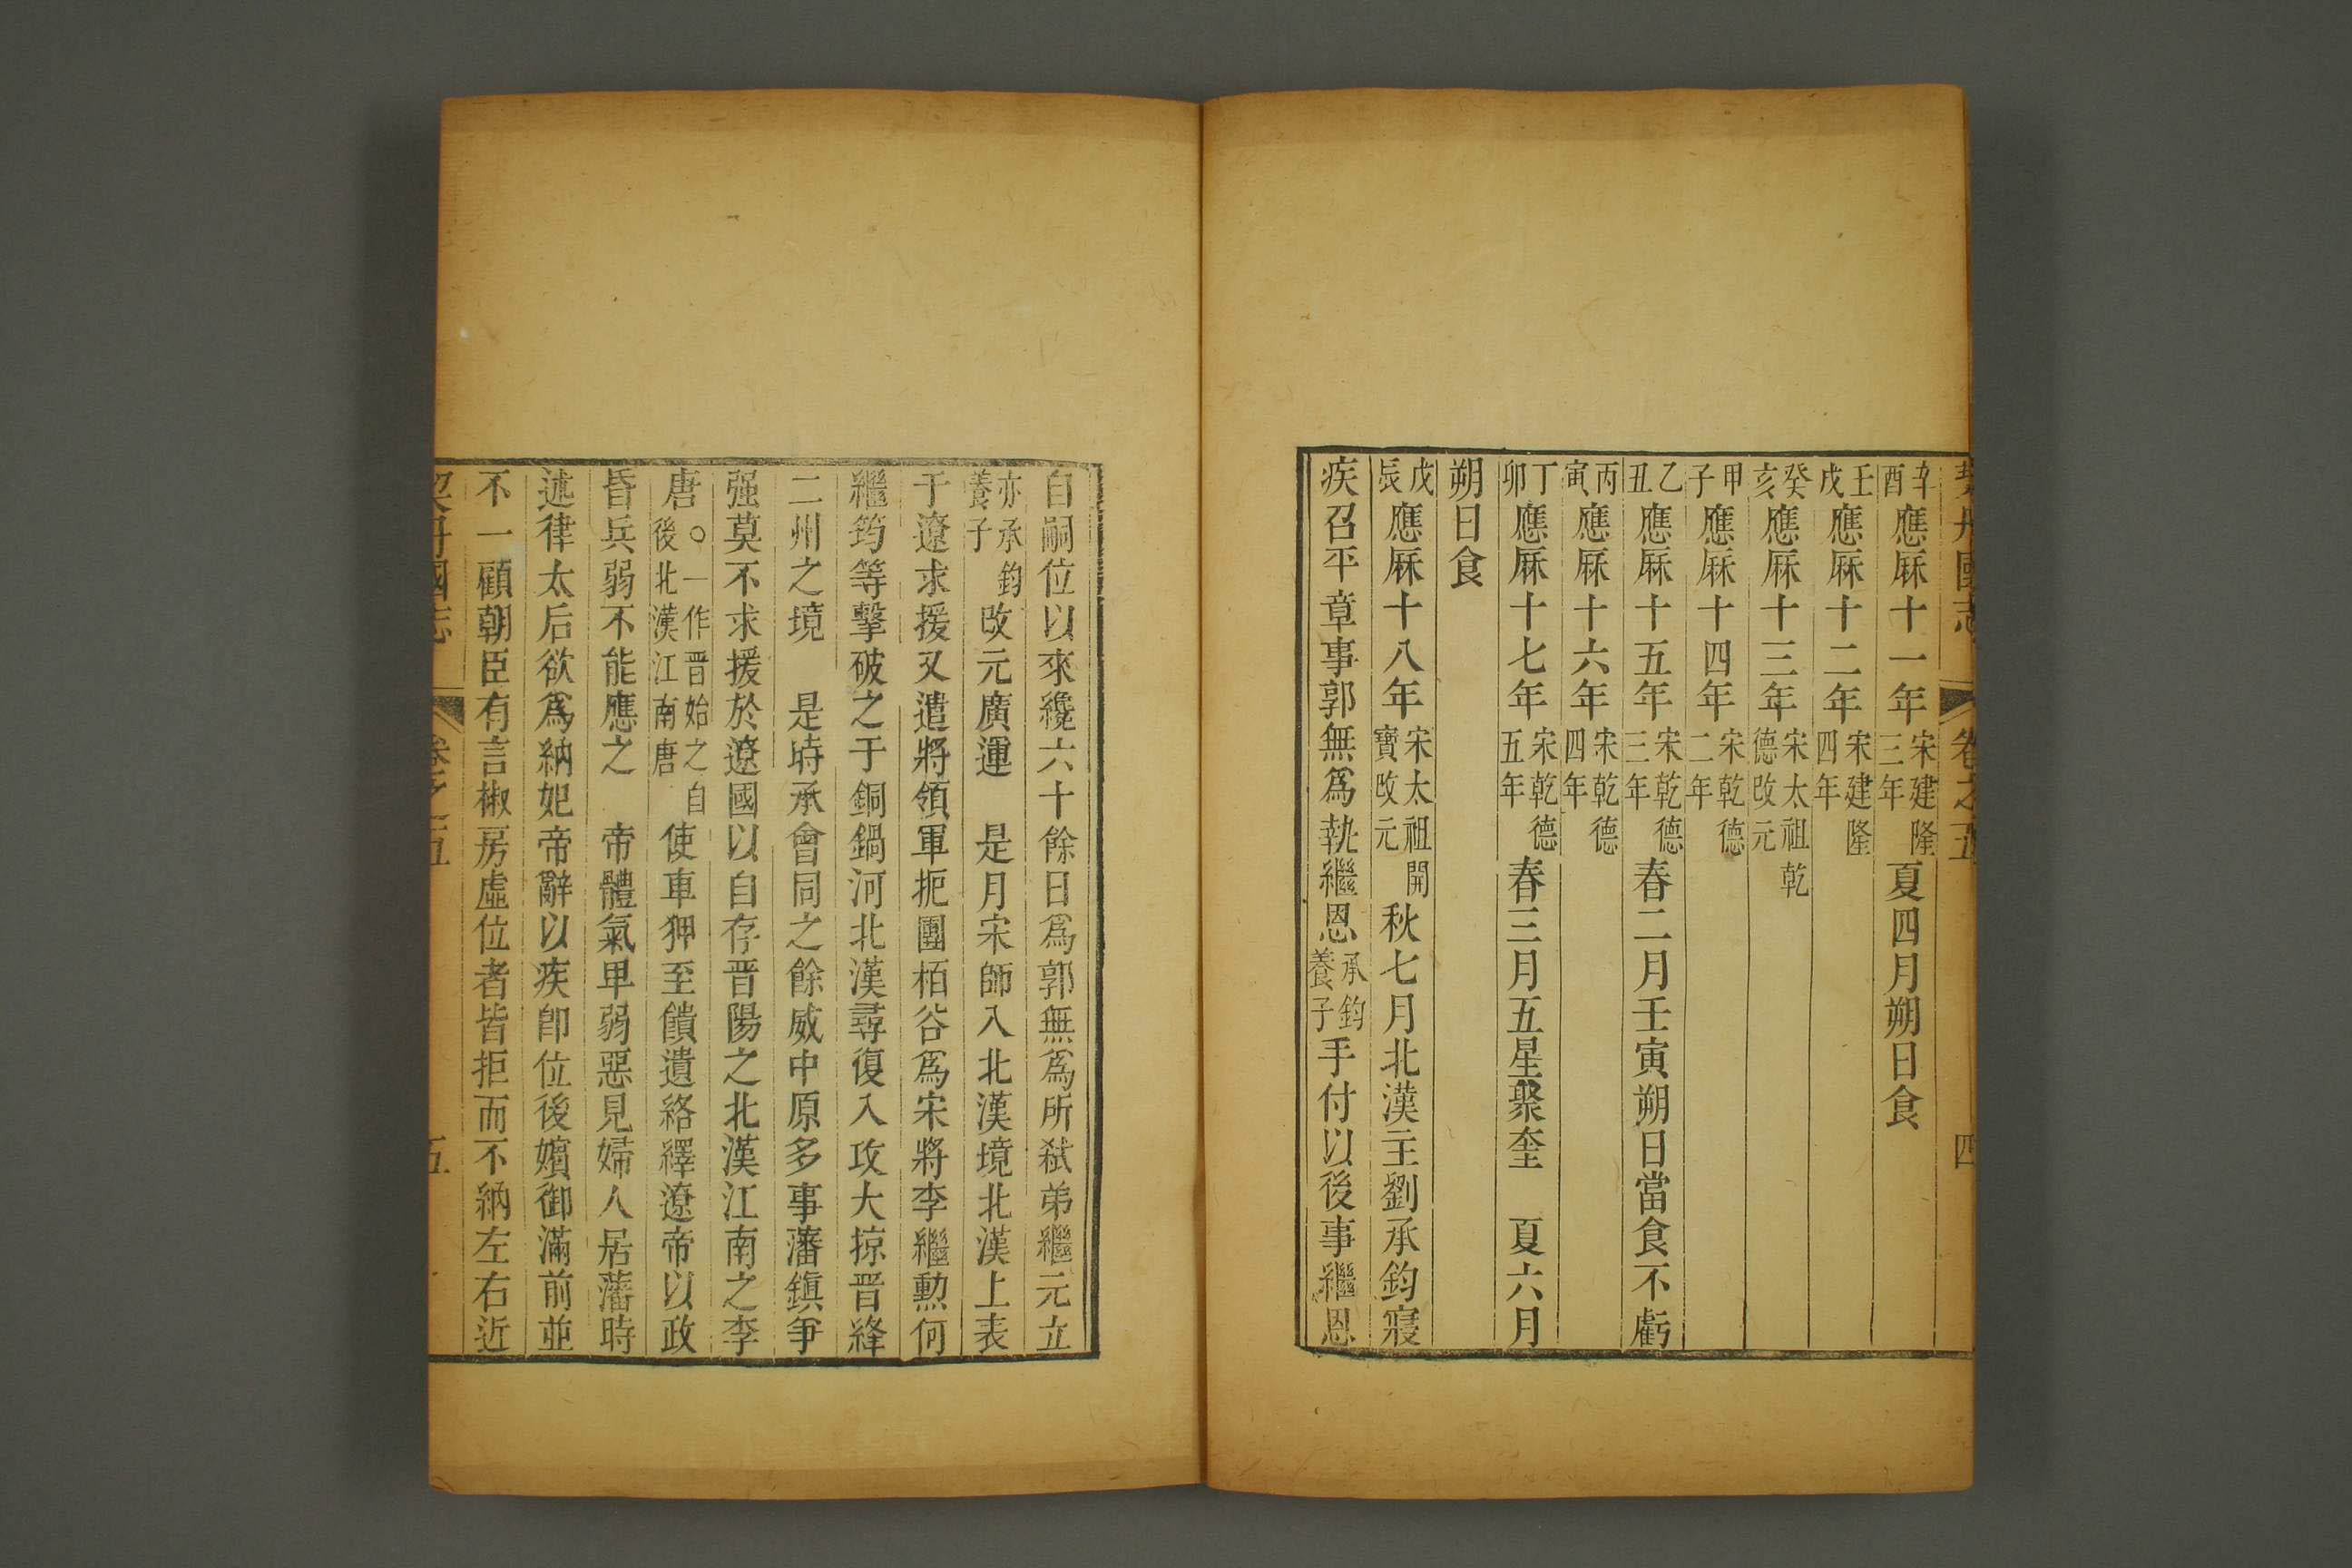 契丹國志 卷之五 四
辛酉應厤十一年宋建隆三年夏四月朔日食
壬戌應厤十二年宋建隆四年
癸亥應厤十三年宋太祖乾德改元
甲子應厤十四年宋乾德二年
乙丑應厤十五年宋乾德三年春二月壬寅朔日當食不虧
丙寅應厤十六年宋乾德四年
丁卯應厤十七年宋乾德五年春三月五星聚奎 夏六月
朔日食
戊辰應厤十八年宋太祖開寶改元秋七月北漢主劉承鈞寢
疾召平章事郭無爲執繼恩承鈞養子手付以後事繼恩
自嗣位以來纔六十餘日爲郭無爲所弒弟繼元立
亦承鈞養子改元廣運 是月宋師入北漢境北漢上表
于遼求援又遣將領軍扼團栢谷爲宋將李繼勲何
繼筠等擊破之于銅鍋河北漢尋復入攻大掠晋絳
二州之境 是時承會同之餘威中原多事藩鎭爭
强莫不求援於遼國以自存晋陽之北漢江南之李
唐○一作晋始之自後北漢江南唐使車狎至饋遺絡繹遼帝以政
昏兵弱不能應之 帝體氣卑弱惡見婦人居藩時
述律太后欲爲納妃帝辭以疾卽位後嬪御滿前並
不一顧朝臣有言椒房虛位者皆拒而不納左右近
契丹國志 卷之五 五